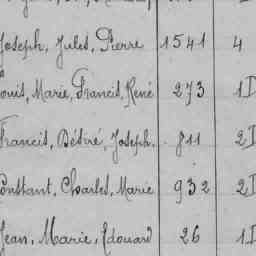 Joseph, Jules, Pierre 1541 4
Louis, Marie, Francis, René 273 1D
Francis, Désiré, Joseph. 811 2D
Constant, Charles, Marie 932 2D
Jean, Marie, Edouard 26 1D